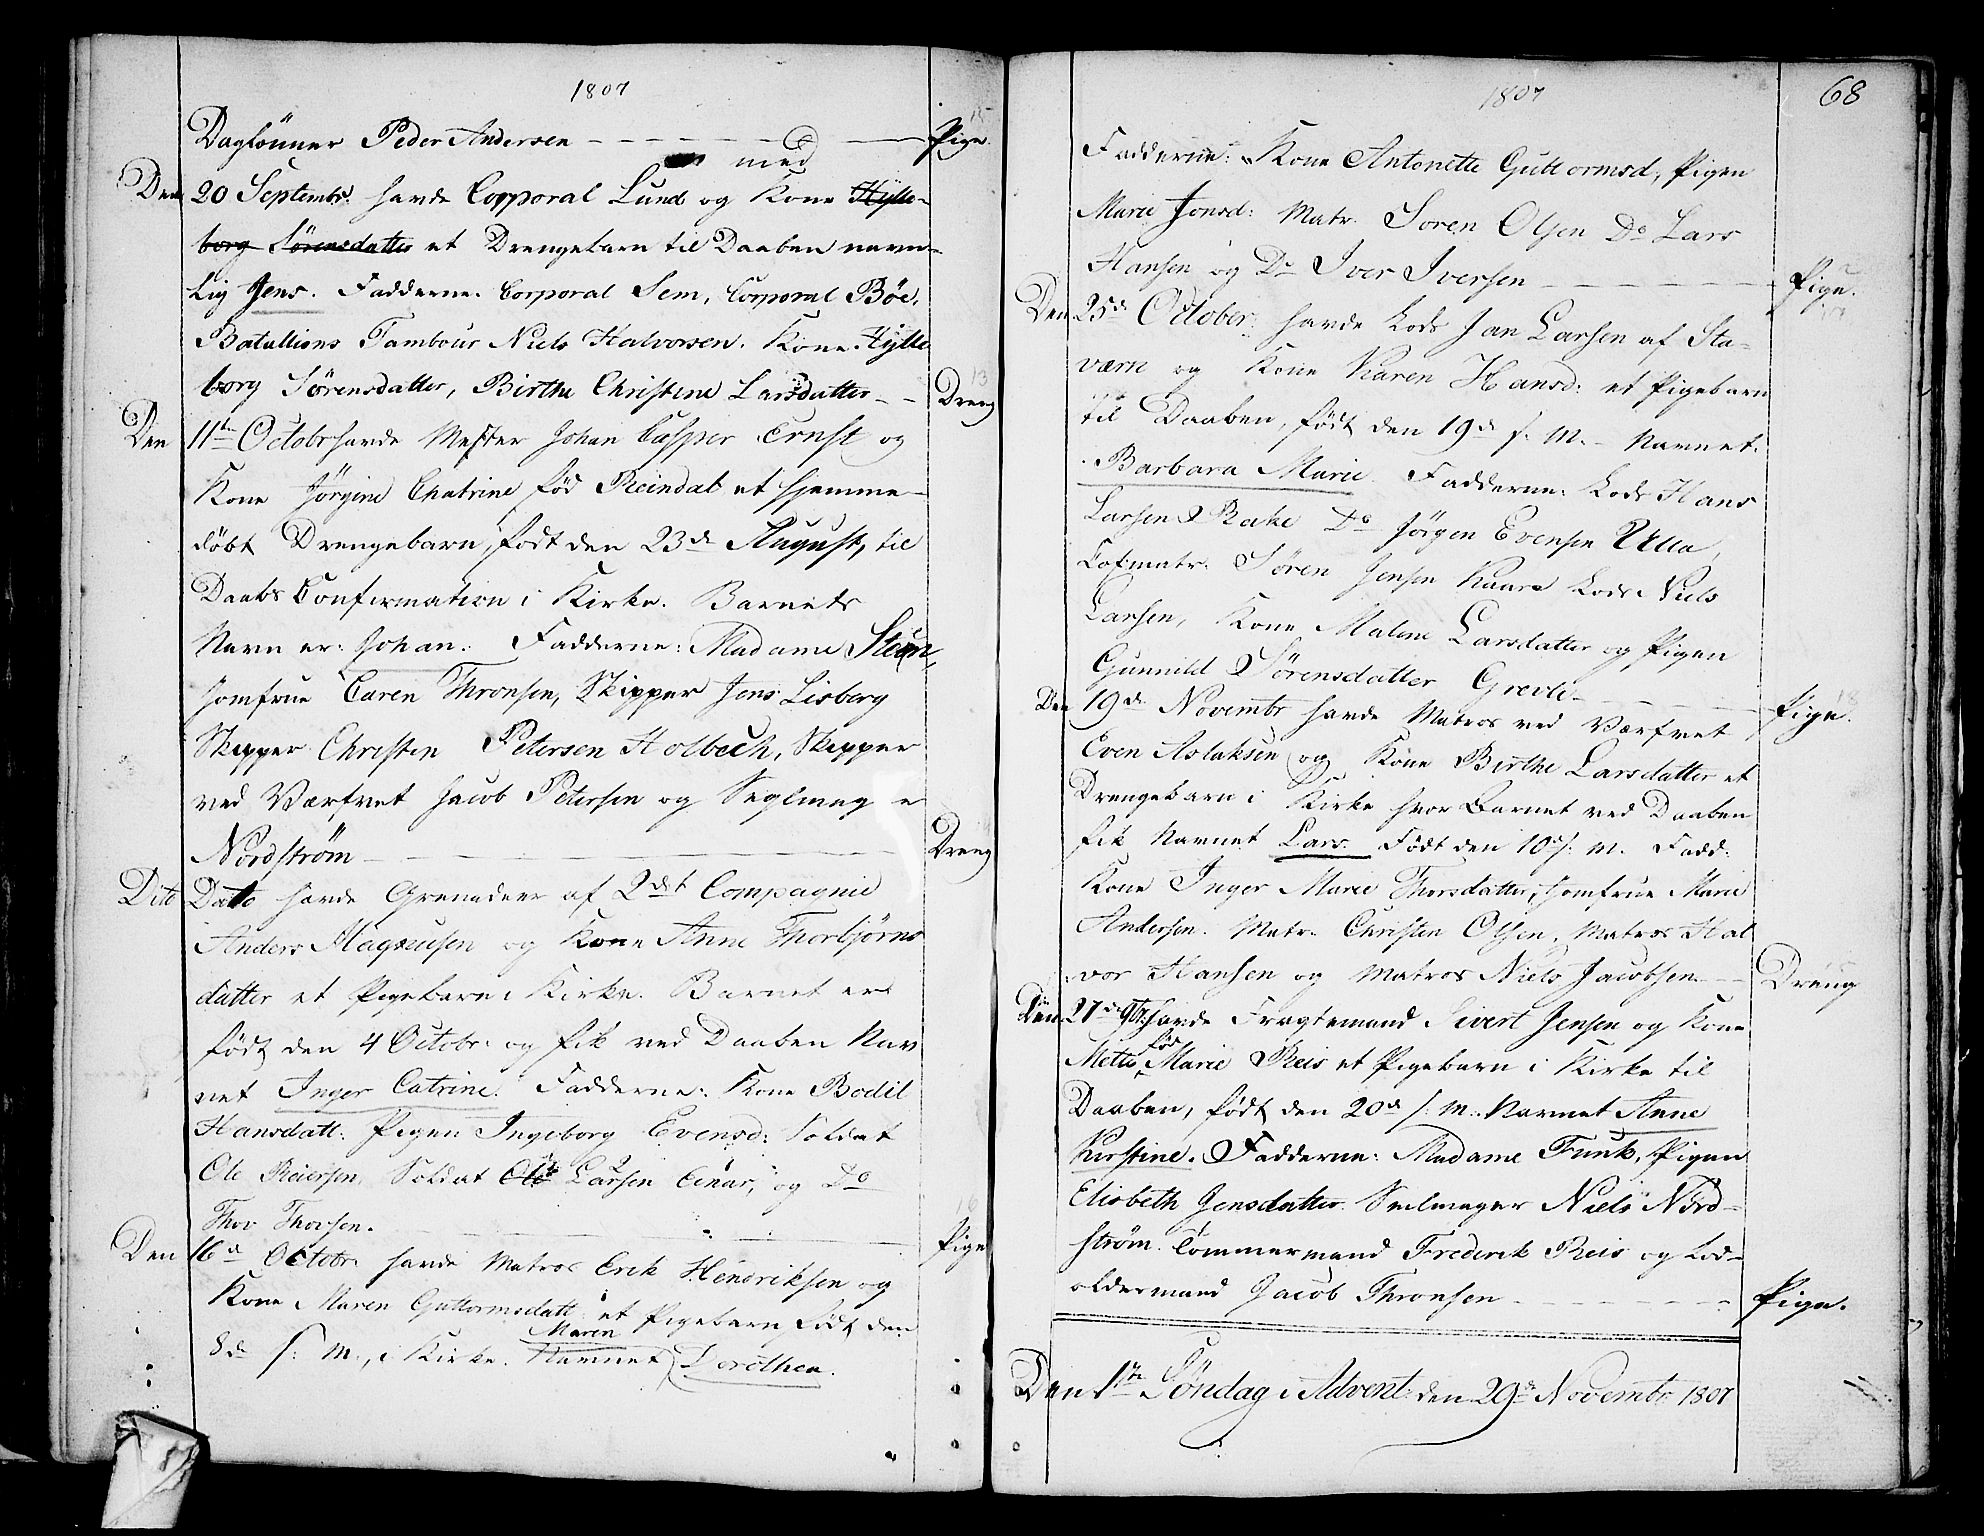 1807
Daglønner Peder Andersen Pige.
med
Den 20 Septembr. havde Corporal Lund og Kone Hylle-
borg Sørensdatter et Drengebarn til Daaben navn-
lig Jens. Fadderne. Corporal Sem, Corporal Böe,
Batallions Tambour Niels Halvorsen. Kone. Hylle
borg Sörensdatter, Birthe Christine Larsdatter Dreng
13
Den 11te Octobr havde Mester Johan Casper Ernst og
Kone Jörgine Chatrine föd Reindal et hjemme-
döbt Drengebarn, født den 23de August, til
Daabs Confirmation i Kirke. Barnets
Navn er: Johan. Fadderne: Madame
Jomfrue Caren Thronsen, Skipper Jens Lisberg
Skipper Christen Petersen Holbech, Skipper
ved Værfvet Jacob Petersen og Seglmag e
Nordström Dreng
Dito Dato havde Grenadeer af 2det Compagnie
Anders Magnusen og Kone Anne Thorbjörns
datter et Pigebarn i Kirke. Barnet er
født den 4 Octobr. og fik ved Daaben Nav
net Inger Catrine. Fadderne: Kone Bodil
Hansdatt: Pigen Ingeborg Evensd: Soldat
Ole Reiersen, Soldat Ole Larsen Einar, og Do
Thor Thorsen. Pige
16
Den 16de Octobr. havde Matros Erik Hendriksen og
Kone Maren Guttormsdatt. et Pigebarn, født den
8de s: M., i Kirke. Navnet Maren Dorethea.
1807
68
Fadderne: Kone Antonette Guttormsd, Pigen
Marie Jonsd: Matr. Soren Olsen Do Lars
Hansen og Do Iver Iversen Pige.
Den 25de October. havde Lods Jan Larsen af Sta-
værn og Kone Karen Hansd: et Pigebarn
til Daaben, født den 19de s. M. - Navnet.
Barbara Marie. Fadderne: Lods Hans
Larsen Rake Do Jörgen Evensen Ulla,
Sören Jensen Lods Niels
Larsen, Kone Malene Larsdatter og Pigen
Gunnild Sörensdatter Grevle Pige.
Den 19de Novembr havde Matros ved Værfvet
Even Aslaksen og Kone Birthe Larsdatter et
Drengebarn i Kirke hvor Barnet ved Daaben
fik Navnet Lars. Født den 10 s: M. Fadd:
Kone Inger Marie Thorsdatter, Jomfrue Marie
Andersen. Matr. Christen Olsen, Matros Hal
vor Hansen og Matros Niels Jacobsen Dreng
Den 27de 9br. havde Fragtemand Sivert Jensen og Kone
Mette Marie föd Reis et Pigebarn i Kirke til
Daaben, født den 20de s: M. Navnet Anne
Kirstine. Fadderne: Madame Funk, Pigen
Elisbeth Jensdatter. Seilmager Niels Nord-
ström. Tömmermand Frederik Reis og Lod-
oldermand Jacob Thronsen Pige.
Den 1te Söndag i Advent den 29de Novembr 1807